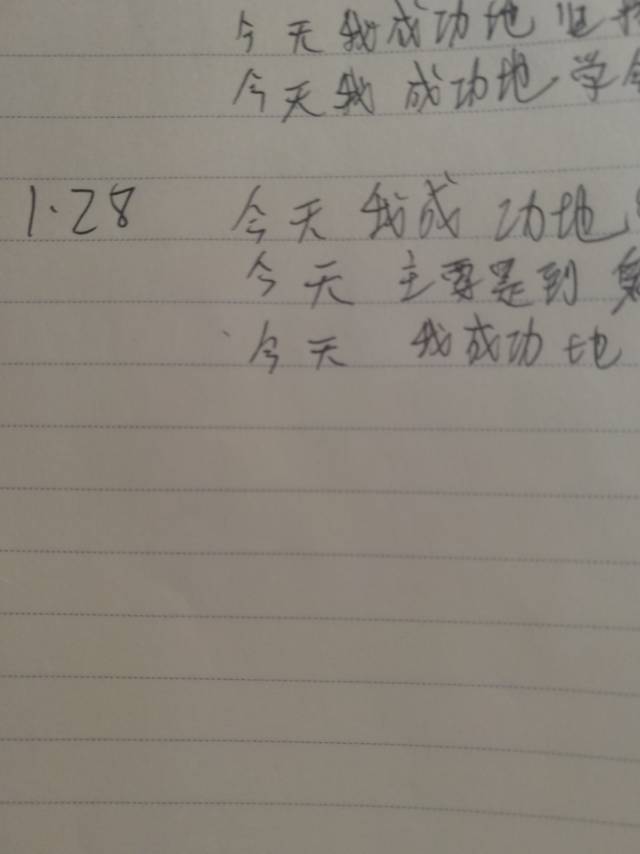 今天我成功地
今天我成功地学会
1.28 今天我成功地
今天主要是到
今天我成功地